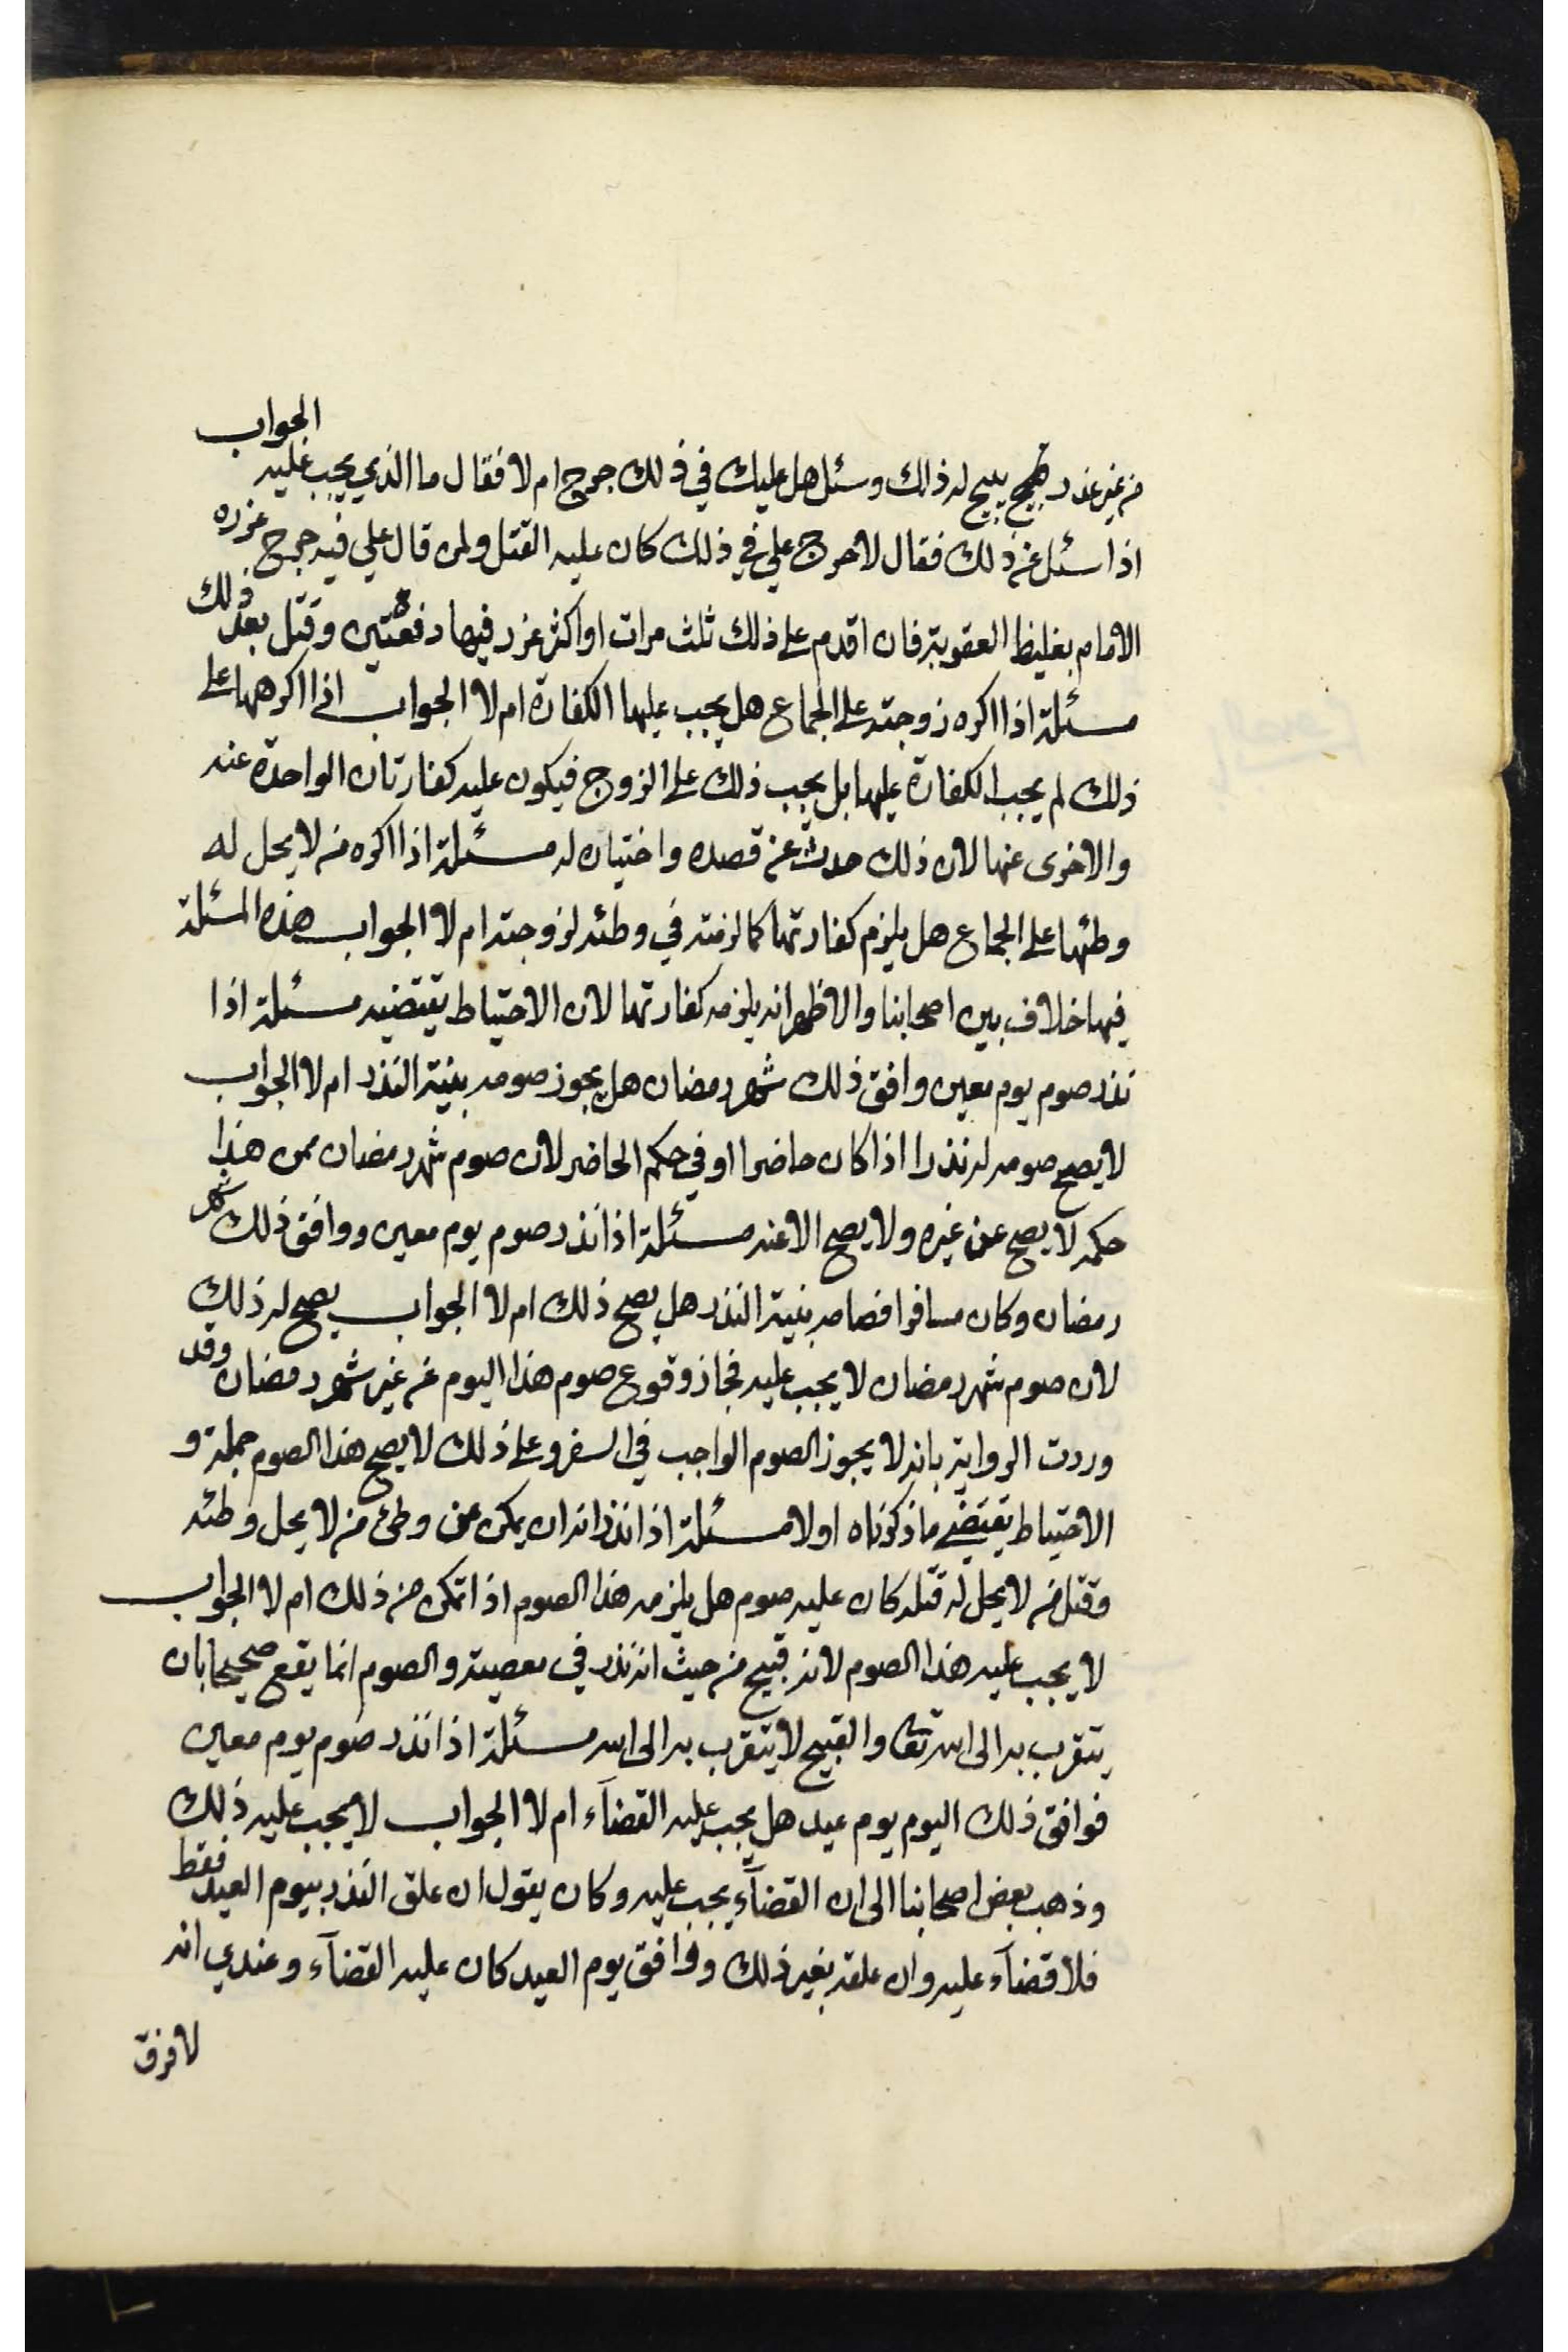 من غير عذر صحيح يبيح له ذلك وسئل هل عليك في ذلك حرج ام لا فقال ما الذي يجب عليه الجواب
اذا سئل عن ذلك فقال لا حرج علي في ذلك كان عليه القتل ولن قال علي فيه حرج عزره
الامام بغليظ العقوبة فان اقدم على ذلك ثلث مرات او اكثر عزر فيها دفعتين وقتل بعد ذلك
مسئلة اذا اكره زوجته على الجماع هل يجب عليها الكفارة ام لا الجواب اذا اكرهها على
ذلك لم يجب الكفارة عليها بل يجب ذلك على الزوج فيكون عليه كفارتان الواحدة عنه
والاخرى عنها لان ذلك حدث عن قصده واختياره له مسئلة اذا اكره من لا يحل له
وطئها على الجماع هل يلزم كفارتها كما لزمته في وطئه لزوجته ام لا الجواب هذه المسئلة
فيها خلاف بين اصحابنا والاظهر انه يلزمه كفارتها لان الاحتياط يقتضيه مسئلة اذا
نذر صوم يوم معين وافق ذلك شهر رمضان هل يجوز صومه بنية النذر ام لا الجواب
لا يصح صومه له نذرا اذا كان حاضرا او في حكم الحاضر لان صوم شهر رمضان ممن هذا
حكمه لا يصح عن غيره ولا يصح الا عنه مسئلة اذا نذر صوم يوم معين ووافق ذلك شهر
رمضان وكان مسافرا فصامه بنية النذر هل يصح ذلك ام لا الجواب يصح له ذلك
لان صوم شهر رمضان لا يجب عليه فجاز وقوع صوم هذا اليوم عن غير شهر رمضان وقد
وردت الرواية بانه لا يجوز الصوم الواجب في السفر وعلى ذلك لا يصح هذا الصوم جملة و
الاحتياط يقتضي ما ذكرناه اولا مسئلة اذا نذر انه ان يمكن من وطئ من لا يحل وطئه
وقتل من لا يحل له قتله كان عليه صوم هل يلزمه هذا الصوم اذا تمكن من ذلك ام لا الجواب
لا يجب عليه هذا الصوم لانه قبيح من حيث انه نذر في معصية والصوم انما يقع صحيحا بان
يتقرب به الى الله تعالى والقبيح لا يتقرب به الى الله مسئلة اذا نذر صوم يوم معين
فوافق ذلك اليوم يوم عيد هل يجب عليه القضآء ام لا الجواب لا يجب عليه ذلك
وذهب بعض اصحابنا الى ان القضآء يجب عليه وكان يقول ان علق النذر بيوم العيد فقط
فلا قضآء عليه وان علقه بغير ذلك ووافق يوم العيد كان عليه القضآء وعندي انه
لا فرق